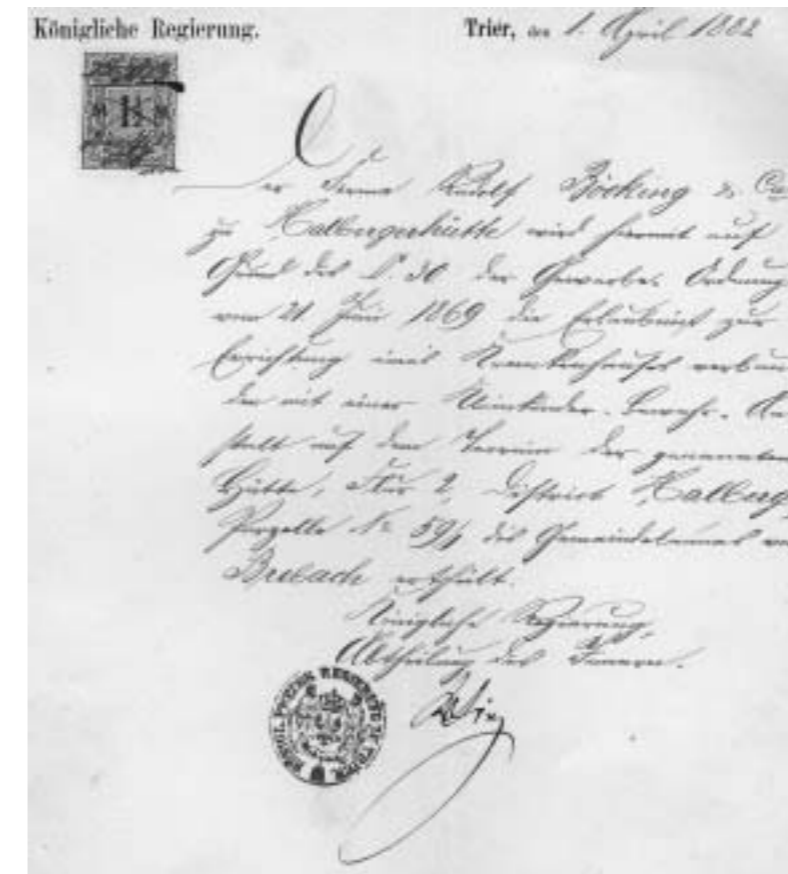 Königliche Regierung.
Trier, den 1. April 1882
Der Firma Rudolf Böcking & Co
zu Halbergerhütte wird hiermit auf
Grund des § 30 der Gewerbe-Ordnung
vom 21 Juni 1869 die Erlaubniß zur
Errichtung eines Krankenhauses verbun
den mit einer Kleinkinder-Bewahr-An
stalt auf dem Terrain der genannten
Hütte, Flur 2, District Halberg,
Parzelle № 59/ des Gemeindebannes
Brebach ertheilt.
Königliche Regierung,
Abtheilung des Innern.